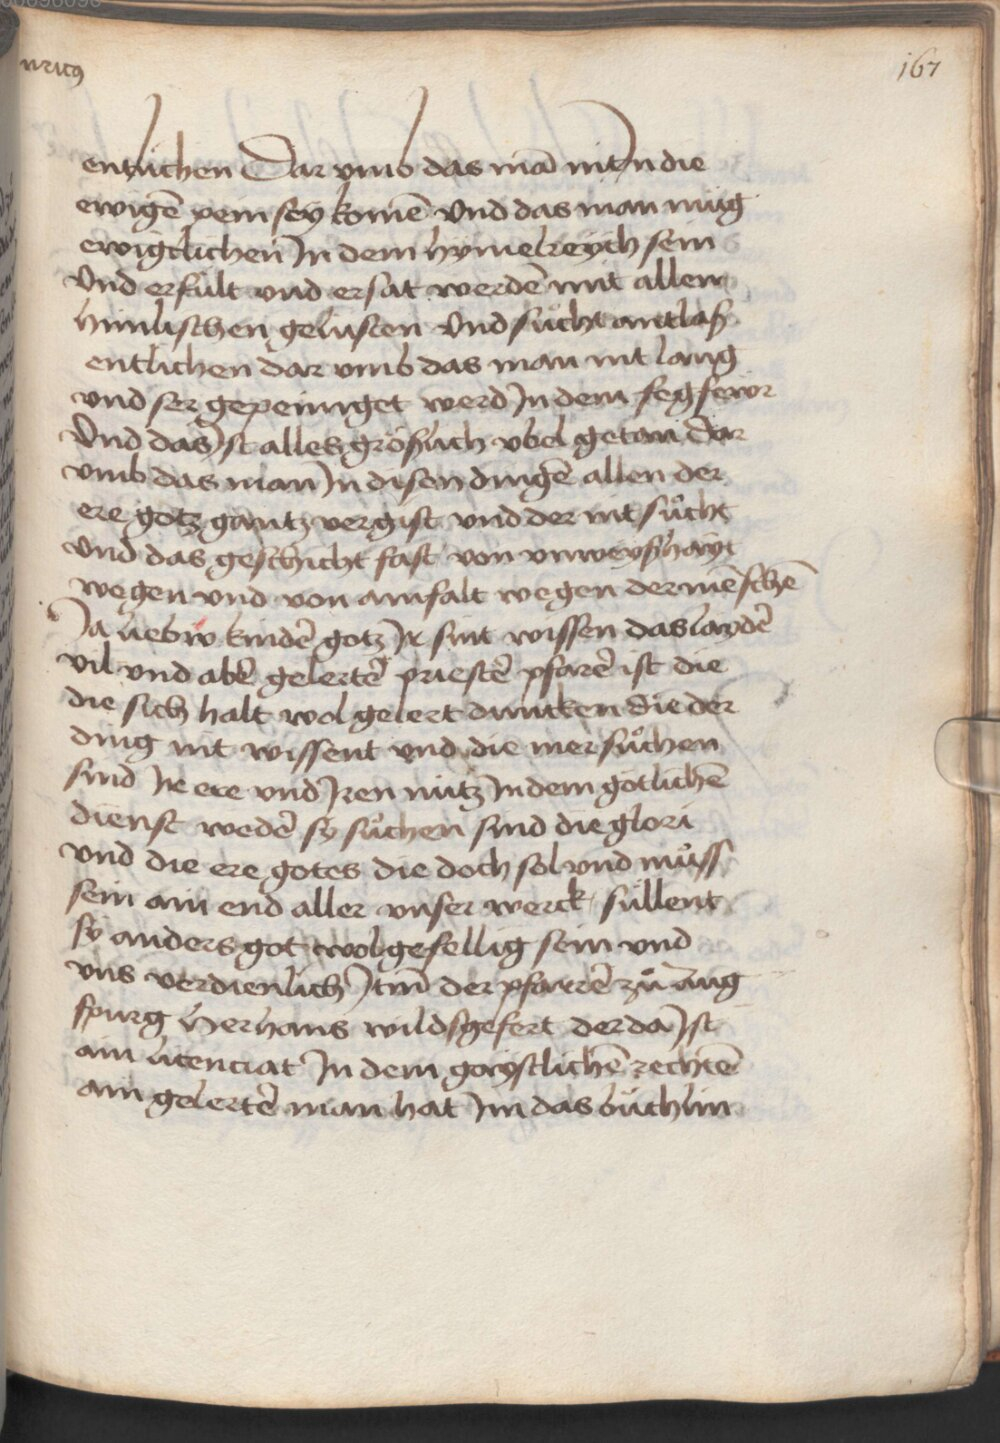 167
entlichen Dar vmb das mā nit In die
ewigē pein sey komē Vnd das man müg
ewigclichen In dem hymelreych sein
Vnd erfült vnd ersat werdē mit allen
himlischen gelusten Vnd sůcht antlaß
entlichen dar vmb das man nit lang
vnd ser gepeiniget werd In dem fegfewr
Vnd das Ist alles größlich vbel getan Dar
vmb das man In disen dingē allen der
ere gotz gantz vergist vnd der nit sůcht
Vnd das geschicht fast von vnweyßhayt
wegen vnd von ainfalt wegen der mēschē
Ja liebw kindē gotz Ir sint wissen das laydē
vil vnd abē gelertē priestē pfarē ist die
die sich halt wol gelert duncken die der
ding nit wissent vnd die mer sůchen
sind Ir ere vnd Iren nutz In dem götlichē
dienst wedē sy sůchen sind die glori
vnd die ere gotes die doch sol vnd můss
sein ain end aller vnser werck süllent
sy anders got wolgefellig sein vnd
vns verdienlich Itm̄ der pfarrē zů aug
spurg Her hans wildsgefert der da Ist
ain licenciat In dem gaystlichē rechtē
ain gelertē man hat Im das bůchlin